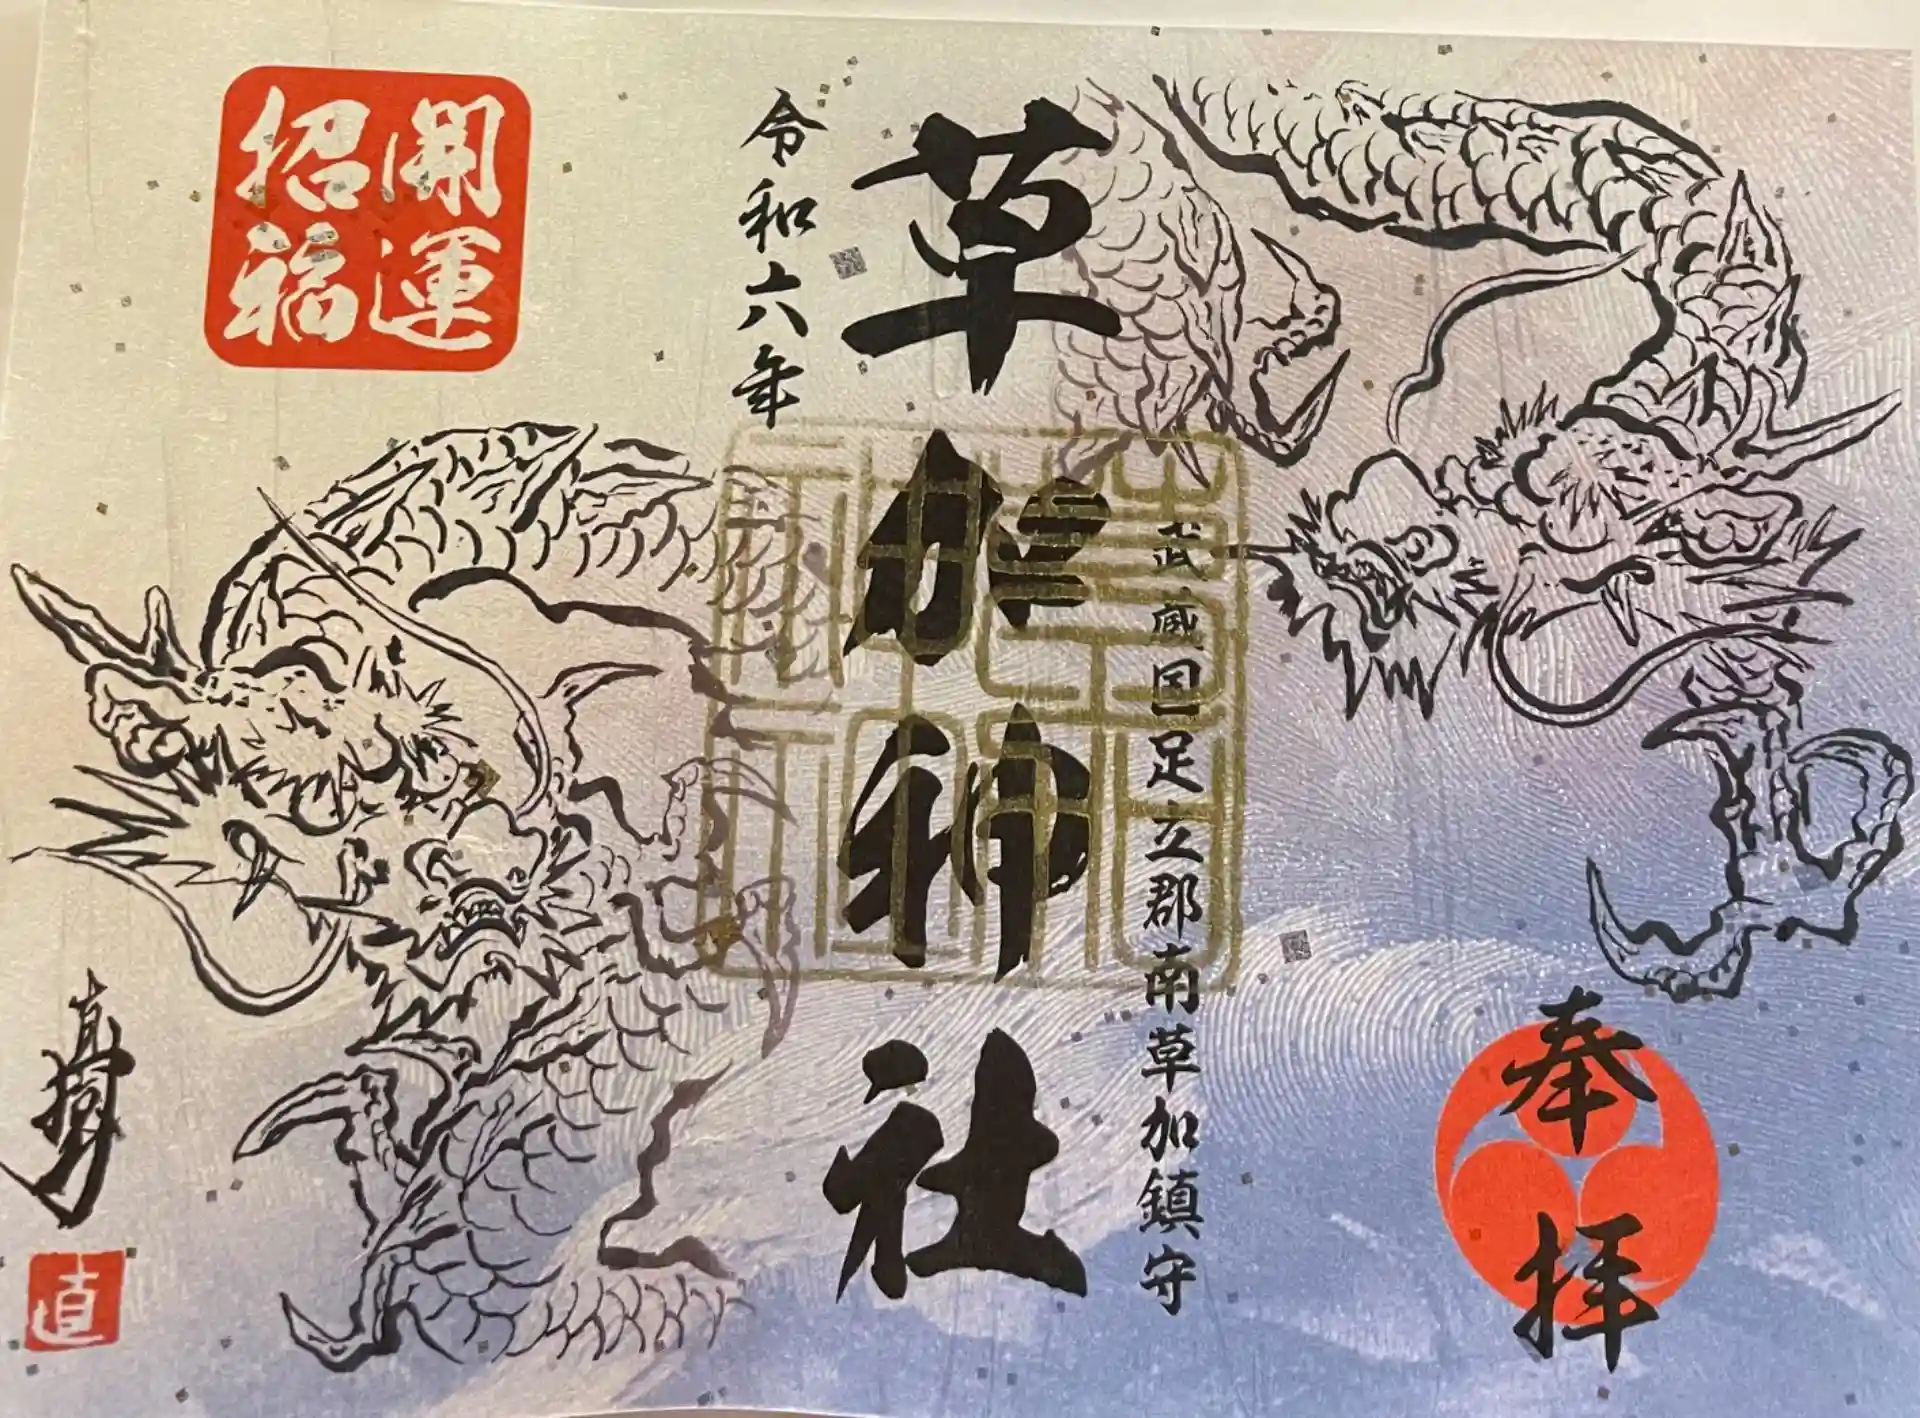 奉拝
武蔵国足立郡南草加鎮守
草加神社
令和六年
開運
招福
直樹
直